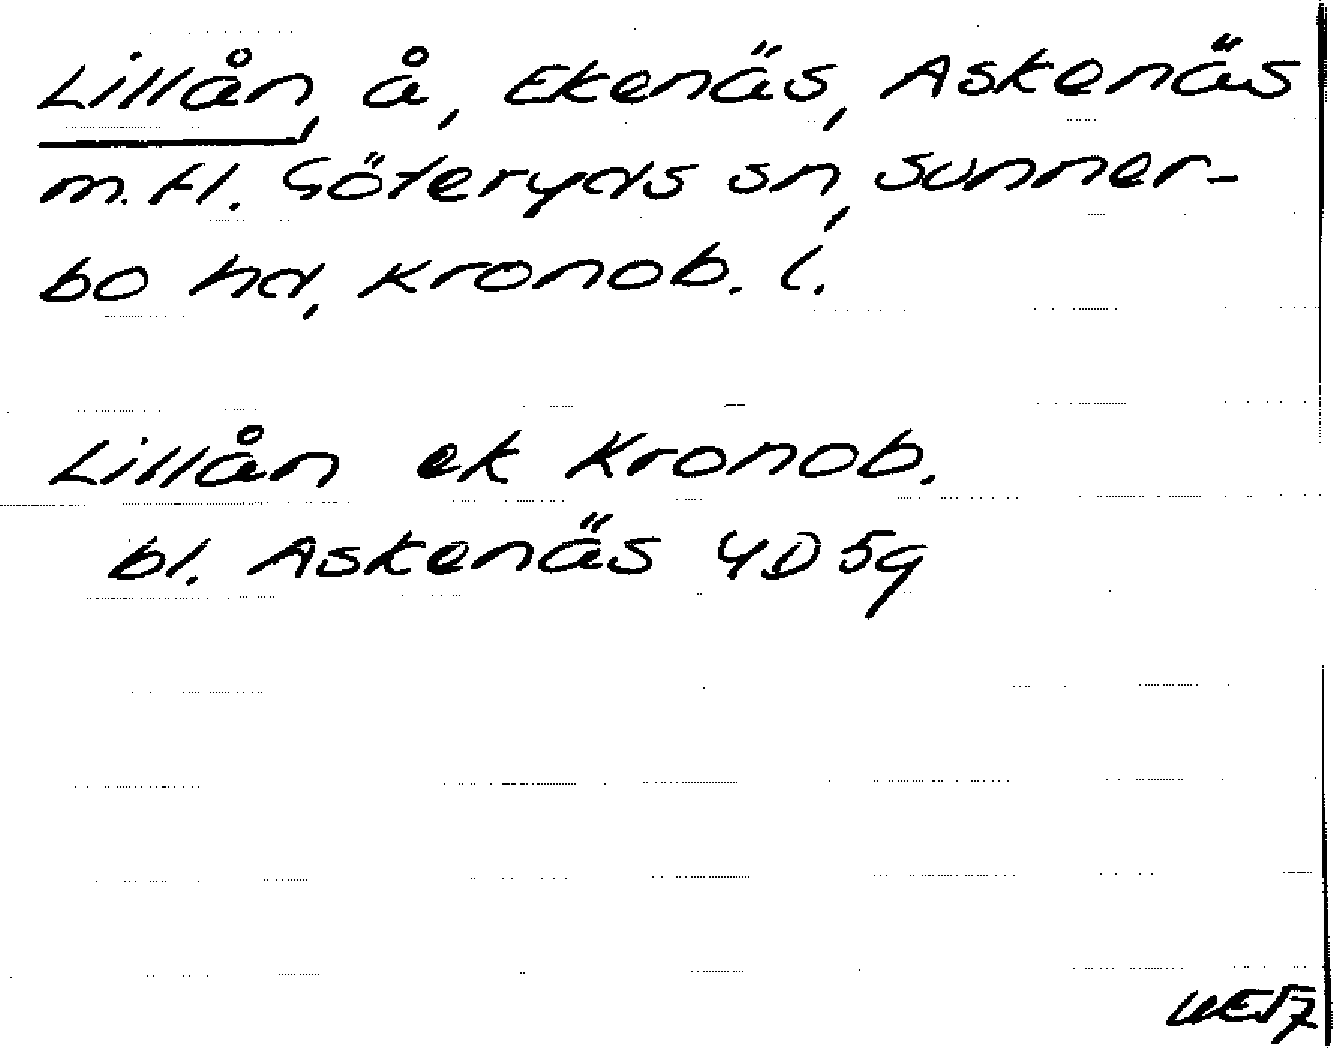 Lillån, å, Ekenäs, Askenäs
m. fl. Göteryds sn, Sunner-
bo hd, Kronob. l.
Lillån ek Kronob.
bl. Askenäs 4D 5g